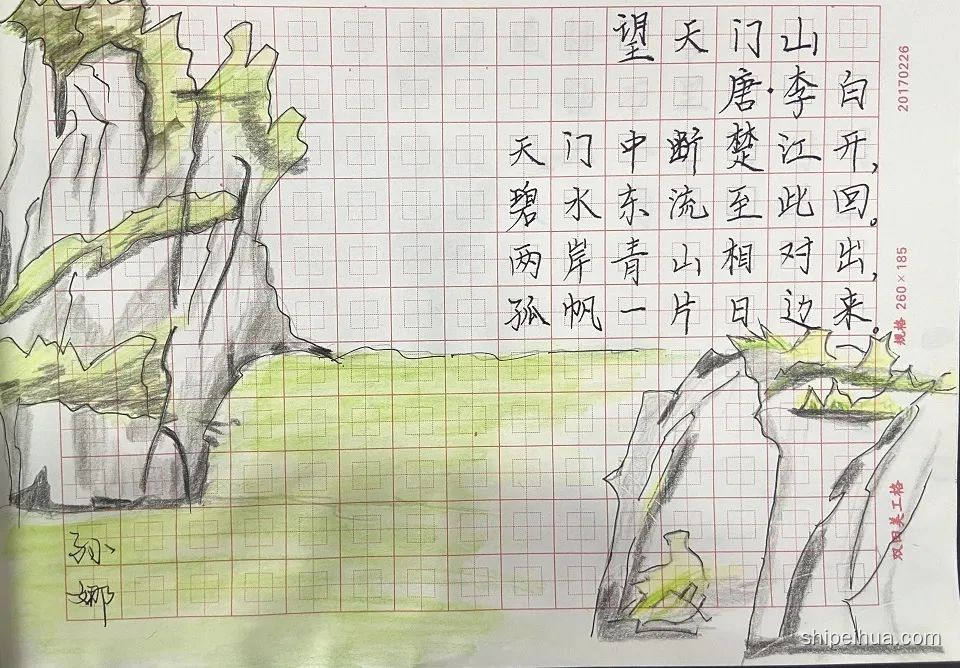 望天门山
唐·李白
天门中断楚江开,
碧水东流至此回。
两岸青山相对出,
孤帆一片日边来。
孙娜
20170226
规格 260×185
双田美工格
shipeihua.com